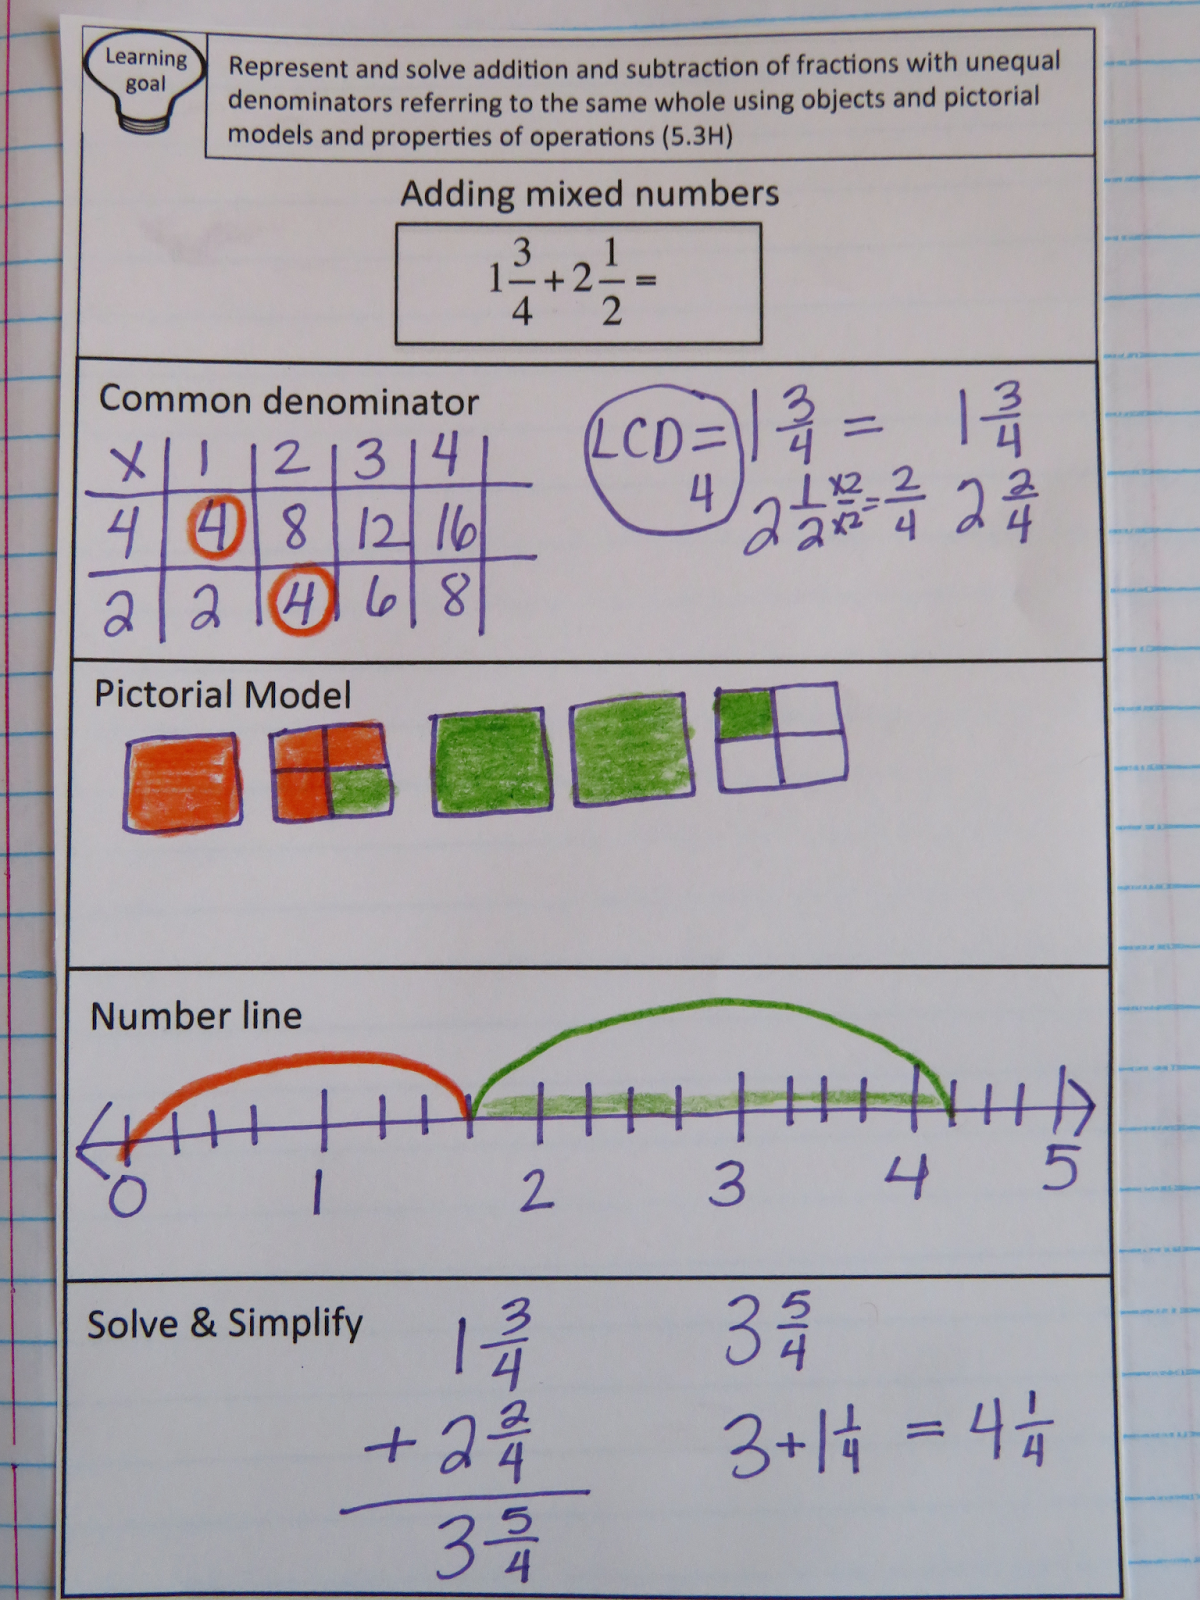 Learning
goal
Represent and solve addition and subtraction of fractions with unequal
denominators referring to the same whole using objects and pictorial
models and properties of operations (5.3H)
Adding mixed numbers
1 3/4 + 2 1/2 =
Common denominator
X 1 2 3 4
4 4 8 12 16
2 2 4 6 8
LCD =
4
1 3/4 = 1 3/4
2 1/2 x2/x2 = 2/4 2 2/4
Pictorial Model
Number line
0 1 2 3 4 5
Solve & Simplify
1 3/4
+ 2 2/4
3 5/4
3 5/4
3 + 1 1/4 = 4 1/4